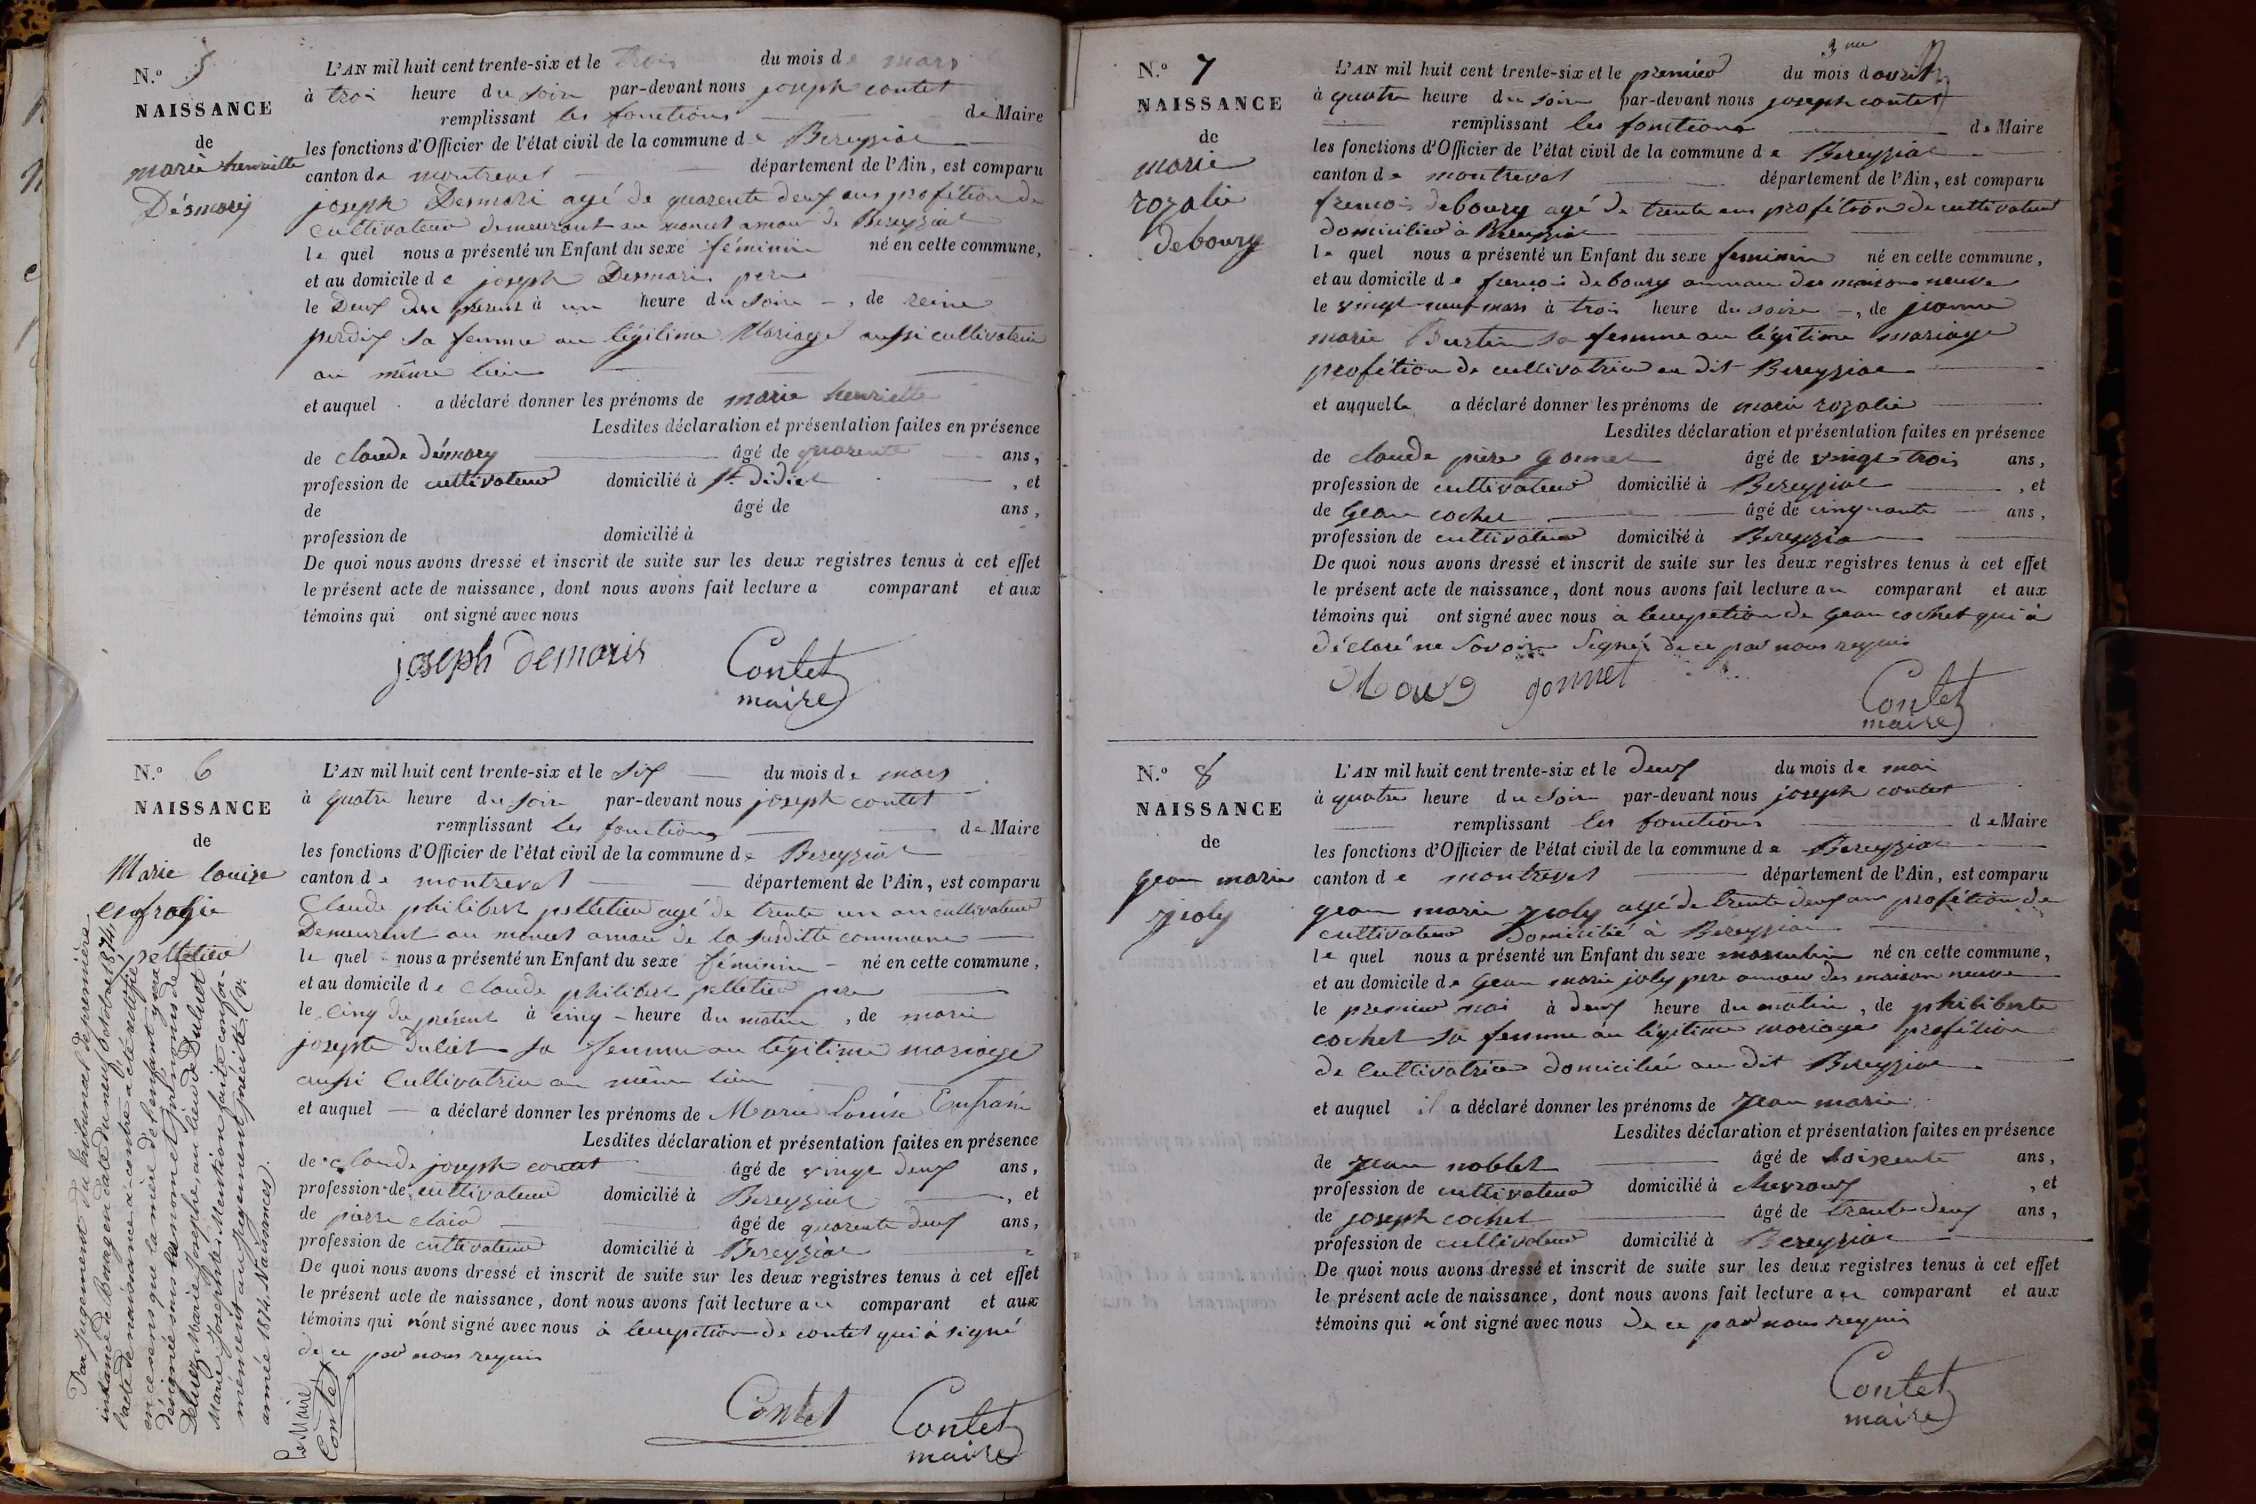 N.º 5
NAISSANCE
de
marie henriette
Désmarij
L'AN mil huit cent trente-six et le trois du mois de mars
à trois heure du soire par-devant nous joseph contet
remplissant les fonctions de Maire
les fonctions d'Officier de l'état civil de la commune de Bereyziat
canton de montrevel département de l'Ain, est comparu
joseph Desmari agé de quarente deux ans profétion de
cultivateur demeurant au moncet amau de Bereyziat
le quel nous a présenté un Enfant du sexe féminin né en cette commune,
et au domicile de joseph Desmari pere
le Deux du présent à un heure du soire, de reine
perdix sa femme au légitime Mariage aussi cultivatrice
au même lieu
et auquel a déclaré donner les prénoms de marie henriette
Lesdites déclaration et présentation faites en présence
de claude démary âgé de quarente ans,
profession de cultivateur domicilié à St didier, et
de âgé de ans,
profession de domicilié à
De quoi nous avons dressé et inscrit de suite sur les deux registres tenus à cet effet
le présent acte de naissance, dont nous avons fait lecture a comparant et aux
témoins qui ont signé avec nous
joseph demaris Contet
maire
N.º 6
NAISSANCE
de
Marie louise
eufrasie
pelletier
Par jugement du tribunal de première
instance de Bourg en date du neuf octobre 1874,
l'acte de naissance ci-contre a été rectifié
en ce sens que la mère de l'enfant y sera
désignée sous les nom et prénoms de
Deluez Marie Josephe, au lieu de Duluet
Marie Josephte. Mention faite confor-
mément au jugement précité. (v.
année 1874. Naissances).
Le Maire
Contet
L'AN mil huit cent trente-six et le six du mois de mars
à quatre heure du soire par-devant nous joseph contet
remplissant les fonctions de Maire
les fonctions d'Officier de l'état civil de la commune de Bereyziat
canton de montrevel département de l'Ain, est comparu
Claude philibert pelletier agé de trente un an cultivateur
Demeurent au moncet amau de la susditte commune
le quel nous a présenté un Enfant du sexe féminin né en cette commune,
et au domicile de Claude philibert pelletier pere
le Cinq du présent à cinq heure du matin, de marie
josephte duliet sa femme au légitime mariage
aussi Cultivatrice au même lieu
et auquel a déclaré donner les prénoms de Marie Louise Eufrasie
Lesdites déclaration et présentation faites en présence
de claude joseph contet âgé de vingt deux ans,
profession de cultivateur domicilié à Bereyziat, et
de pierre clair âgé de quarente deux ans,
profession de cultivateur domicilié à Bereyziat
De quoi nous avons dressé et inscrit de suite sur les deux registres tenus à cet effet
le présent acte de naissance, dont nous avons fait lecture au comparant et aux
témoins qui n'ont signé avec nous à lexepetion de contet qui à signé
de ce par nous requis
Contet Contet
maire
N.º 7
NAISSANCE
de
marie
rozalie
debourg
3me
L'AN mil huit cent trente-six et le premier du mois d avril
à quatre heure du soire par-devant nous joseph contet
remplissant les fonctions de Maire
les fonctions d'Officier de l'état civil de la commune de Bereyziat
canton de montrevel département de l'Ain, est comparu
frençois debourg agé de trente ans profétion de cultivateur
domicilier à Bereyziat
le quel nous a présenté un Enfant du sexe feminin né en cette commune,
et au domicile de françois debourg ammau des maisons neuve
le vingt neuf mars à trois heure du soire, de jeanne
marie Burtin sa femme au légitime mariage
profétion de cultivatrice au dit Bereyziat
et auquelle a déclaré donner les prénoms de marie rozalie
Lesdites déclaration et présentation faites en présence
de claude piere gonnet âgé de vingt trois ans,
profession de cultivateur domicilié à Bereyziat, et
de Gean cochet âgé de cinquante ans,
profession de cultivateur domicilié à Bereyzia
De quoi nous avons dressé et inscrit de suite sur les deux registres tenus à cet effet
le présent acte de naissance, dont nous avons fait lecture au comparant et aux
témoins qui ont signé avec nous à lexepetion de Gean cochet qui à
déclaré ne Savoir Signer de ce par nous requis
gonnet Contet
maire
N.º 8
NAISSANCE
de
gean marie
jioly
L'AN mil huit cent trente-six et le deux du mois de mai
à quatre heure du soire par-devant nous joseph contet
remplissant les fonctions de Maire
les fonctions d'Officier de l'état civil de la commune de Bereyziat
canton de montrevel département de l'Ain, est comparu
gean marie jioly agé de trente deux an profétion de
cultivateur Domicilié à Bereyziat
le quel nous a présenté un Enfant du sexe masculin né en cette commune,
et au domicile de Gean marie joly pere amau des maison neuve
le premier mai à deux heure du matin, de philiberte
cochet sa femme au légitime mariage profétion
de Cultivatrice domiciliée au dit Bereyziat
et auquel il a déclaré donner les prénoms de jean marie
Lesdites déclaration et présentation faites en présence
de jean noblet âgé de Soixente ans,
profession de cultivateur domicilié à chevroux, et
de joseph cochet âgé de trente deux ans,
profession de cultivateur domicilié à Bereyziat
De quoi nous avons dressé et inscrit de suite sur les deux registres tenus à cet effet
le présent acte de naissance, dont nous avons fait lecture au comparant et aux
témoins qui n'ont signé avec nous de ce par nous requis
Contet
maire